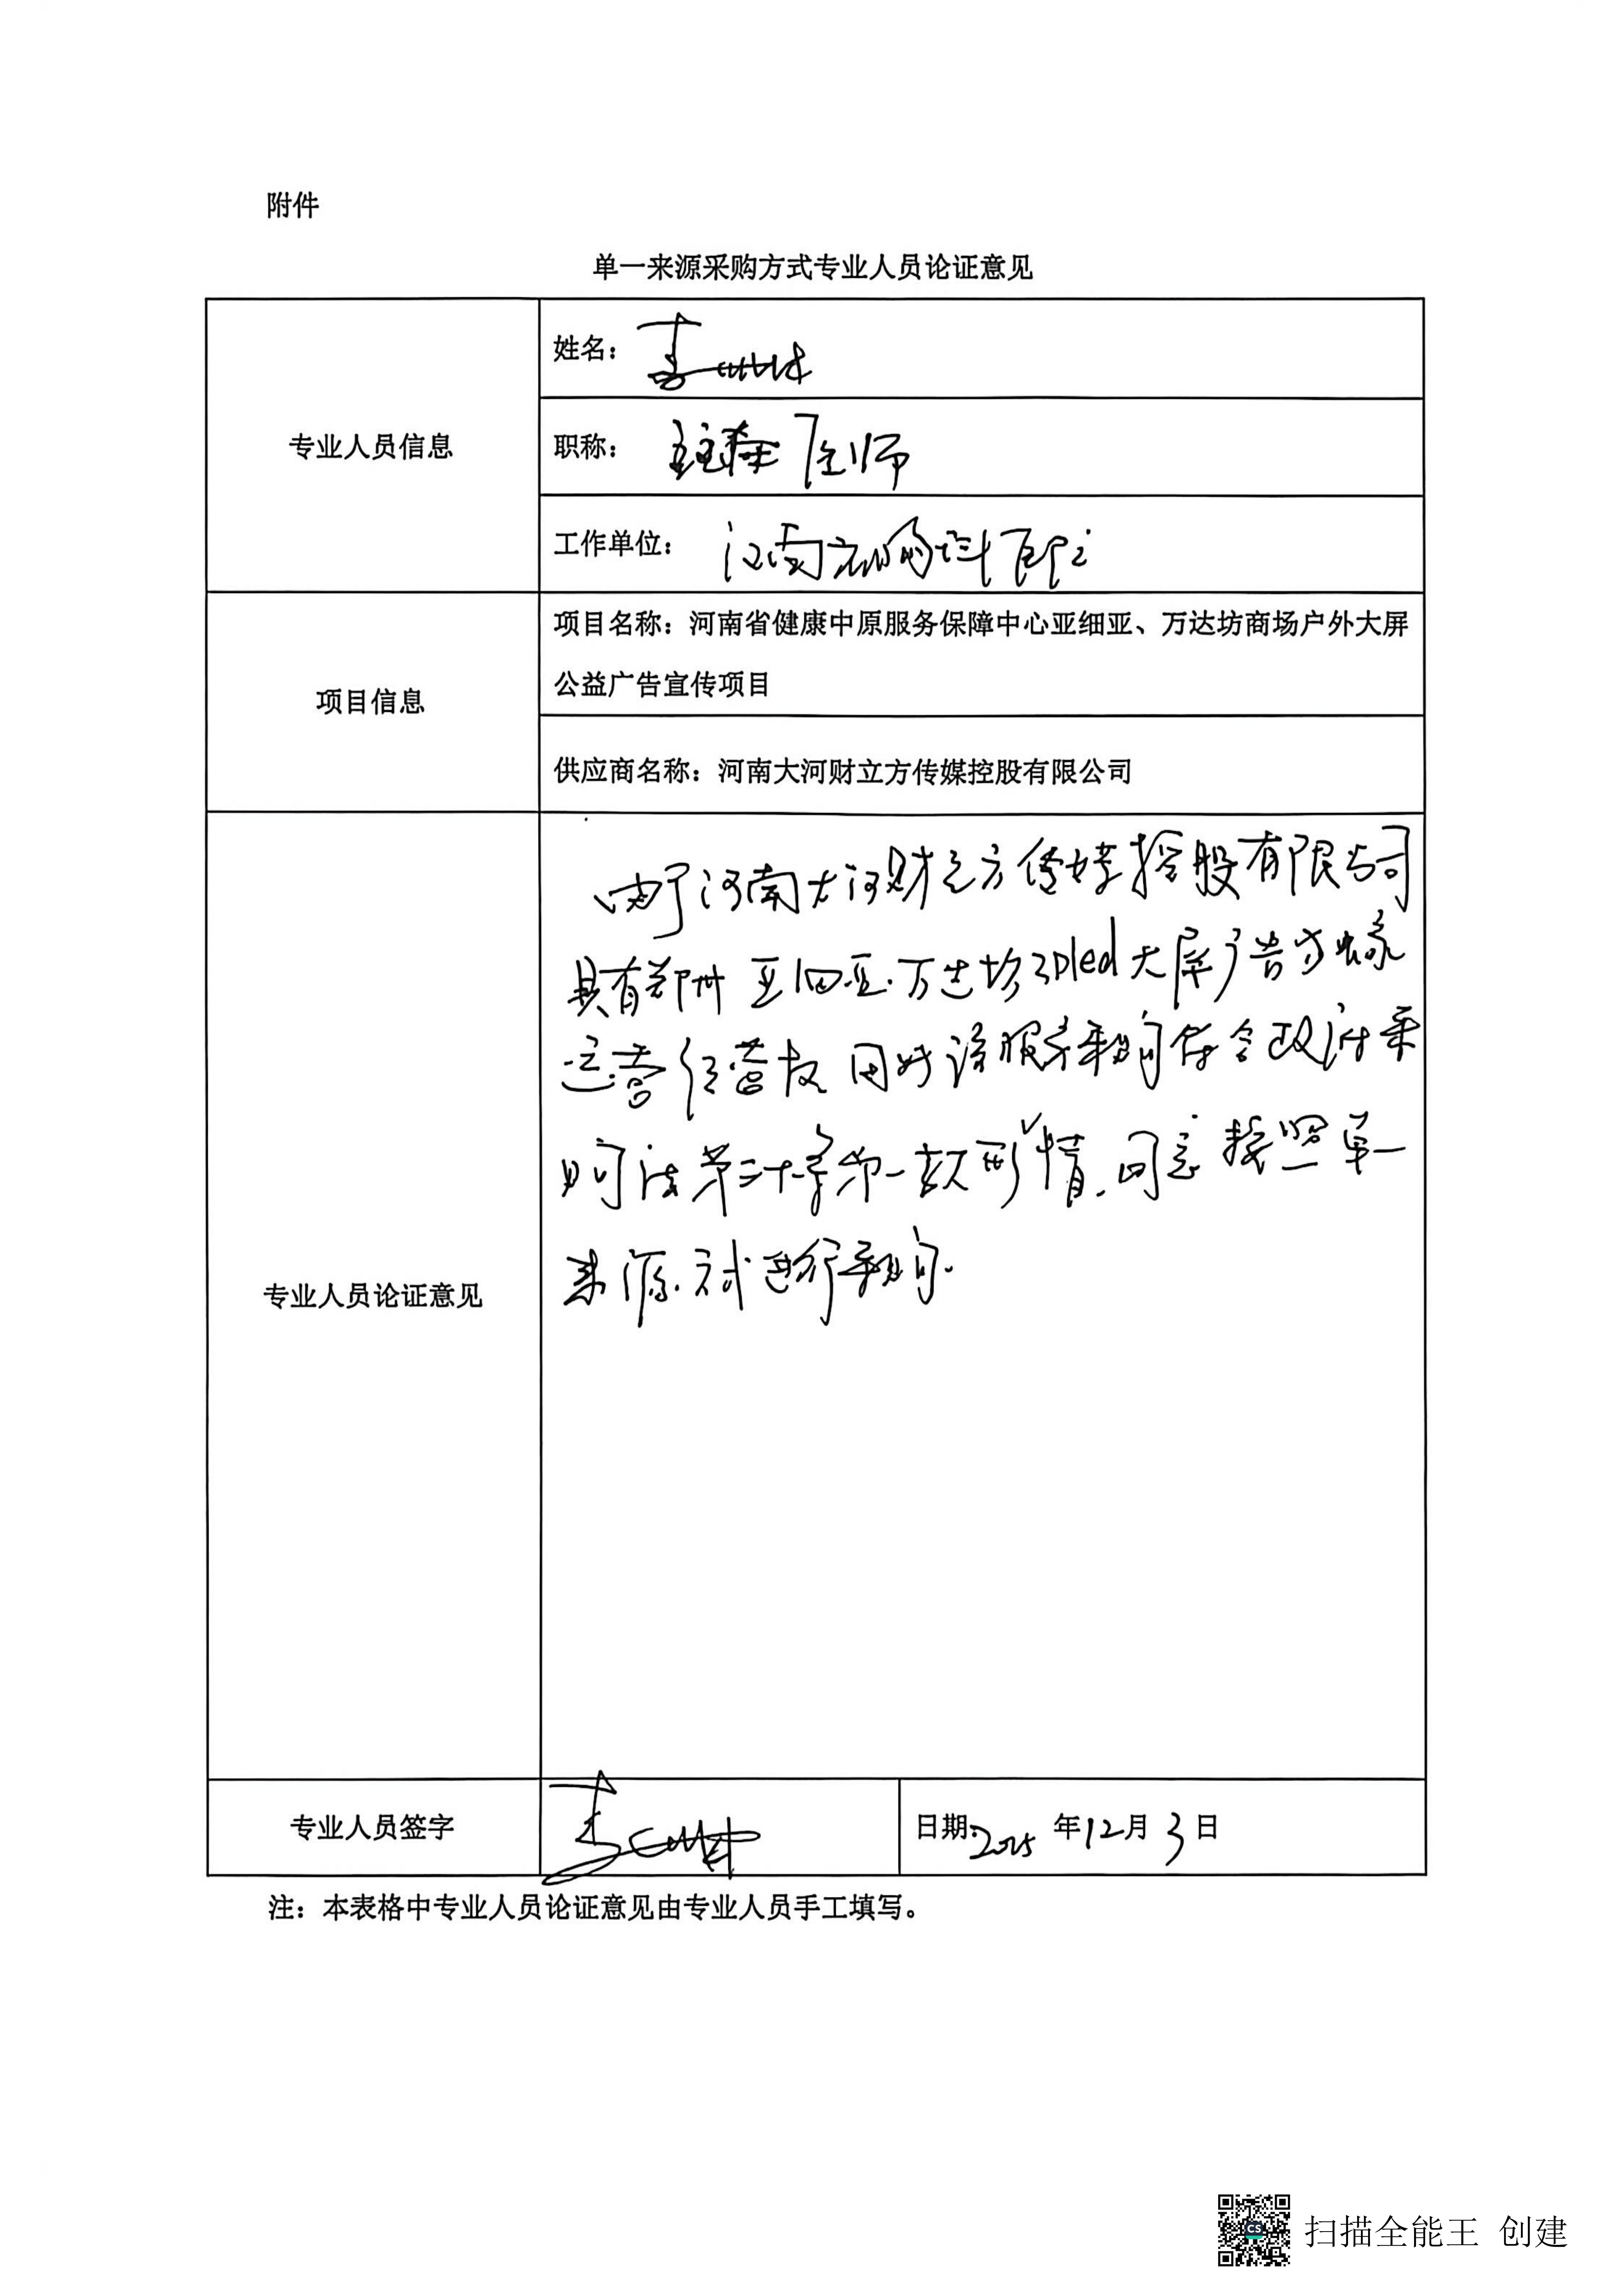 附件
单一来源采购方式专业人员论证意见
专业人员信息
姓名：
职称：
工作单位：河南
项目信息
项目名称：河南省健康中原服务保障中心亚细亚、万达坊商场户外大屏
公益广告宣传项目
供应商名称：河南大河财立方传媒控股有限公司
专业人员论证意见
由于河南大河财立方传媒控股有限公司
具有郑州亚细亚.万达坊3Dled大屏广告独家
运营经营权 因此该服务采购符合政府采
购法第三十一条第一款情形，同意按照单一
来源方式进行采购.
专业人员签字
日期：2025年12月3日
注：本表格中专业人员论证意见由专业人员手工填写。
扫描全能王 创建